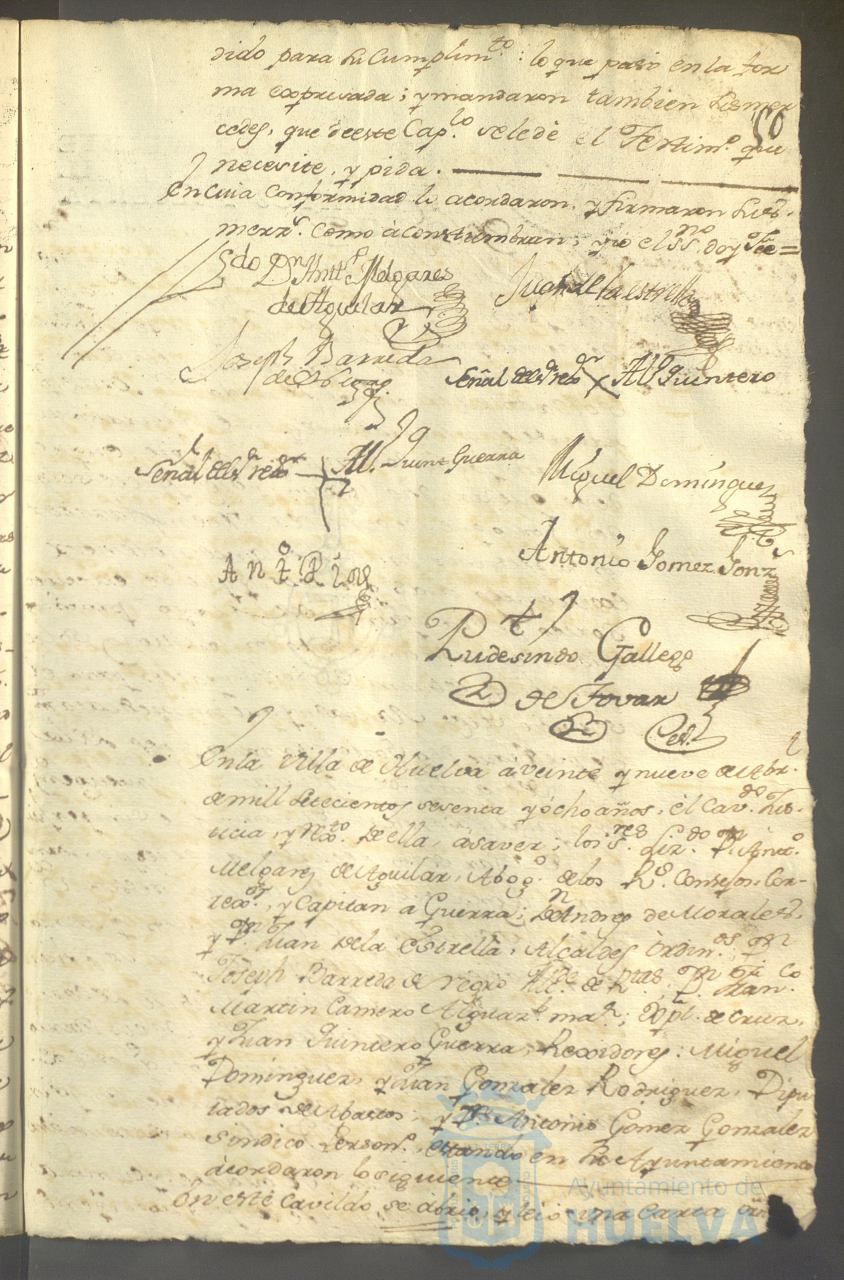 dido para su Cumplim.to: lo que pasó en la for
ma expresada; y mandaron tambien sus mer
cedes, que de este Cap.lo se le dè el Testim.o que
50
necesite, y pida.
En cuia conformidad lo acordaron, y firmaron sus
merz.s como à constumbran; y yo el ss.no doy Fee=
Lizdo Dn Antt.o Melgares
de Aguilar
Juan de la estrella
Joseph Barreda
Señal del Sr rexor
Al Quintero
Señal del Sr rexor
Quint Guerra
Miguel Dominguez
Antonio Gomez Gonz
Ant.o Rios
Rudesindo Gallego
de Tovar
En la villa de Huelva à veinte y nueve de Abr.l
de mill setecientos sesenta y ocho años, el Cav.do Jus-
ticia, y Rex.to de ella, à saver; los S.res Liz.do Dn Ant.o
Melgarez de Aguilar, Abog.o de los R.s Consejos, Cor-
rex.or, y Capitan a Guerra; Dn Andres de Morales,
y Dn Juan de la Estrella, Alcaldes Ordin.os, Dn
Joseph Barreda de
Martin Camero Alguaz.l mar; Xpl. de Cruz,
y Juan Quintero Guerra, Rexidores: Miguel
Dominguez, y Juan Gonzalez Rodriguez, Dipu
tados de Abastos, y Dn Antonio Gomez Gonzalez
Sindico Person.o, estando en su Ayuntamiento
acordaron lo siguiente
En este cavildo se abrio, y leio una carta
Ayuntamiento de
HUELVA